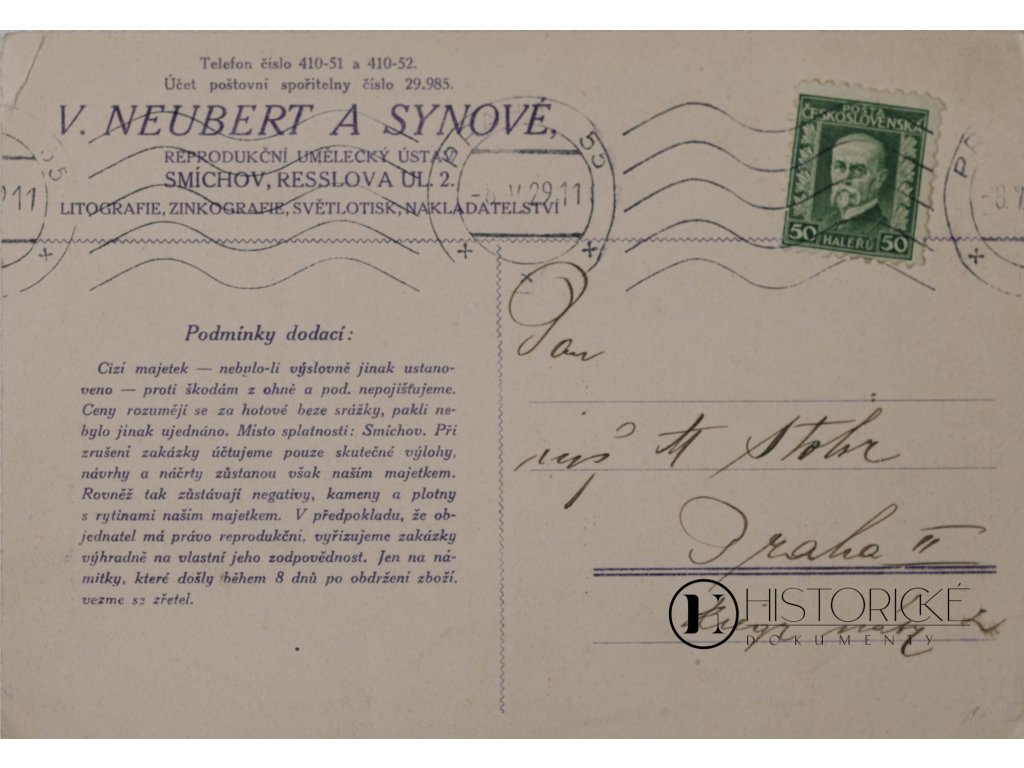 Telefon číslo 410-51 a 410-52.
Účet poštovní spořitelny číslo 29.985.
V. NEUBERT A SYNOVÉ,
REPRODUKČNÍ UMĚLECKÝ ÚSTAV
SMÍCHOV, RESSLOVA UL. 2.
LITOGRAFIE, ZINKOGRAFIE, SVĚTLOTISK, NAKLADATELSTVÍ
55
29 11
55
-8. V 29.11
POŠTA
ČESKOSLOVENSKÁ
50 HALÉŘŮ 50
P
-8. V
Podmínky dodací:
Cizí majetek — nebylo-li výslovně jinak ustano-
veno — proti škodám z ohně a pod. nepojišťujeme.
Ceny rozumějí se za hotové beze srážky, pakli ne-
bylo jinak ujednáno. Místo splatnosti: Smíchov. Při
zrušení zakázky účtujeme pouze skutečné výlohy,
návrhy a náčrty zůstanou však naším majetkem.
Rovněž tak zůstávají negativy, kameny a plotny
s rytinami naším majetkem. V předpokladu, že ob-
jednatel má právo reprodukční, vyřizujeme zakázky
výhradně na vlastní jeho zodpovědnost. Jen na ná-
mitky, které došly během 8 dnů po obdržení zboží,
vezme se zřetel.
Pan
M Stohr
Praha II
HISTORICKÉ
DOKUMENTY